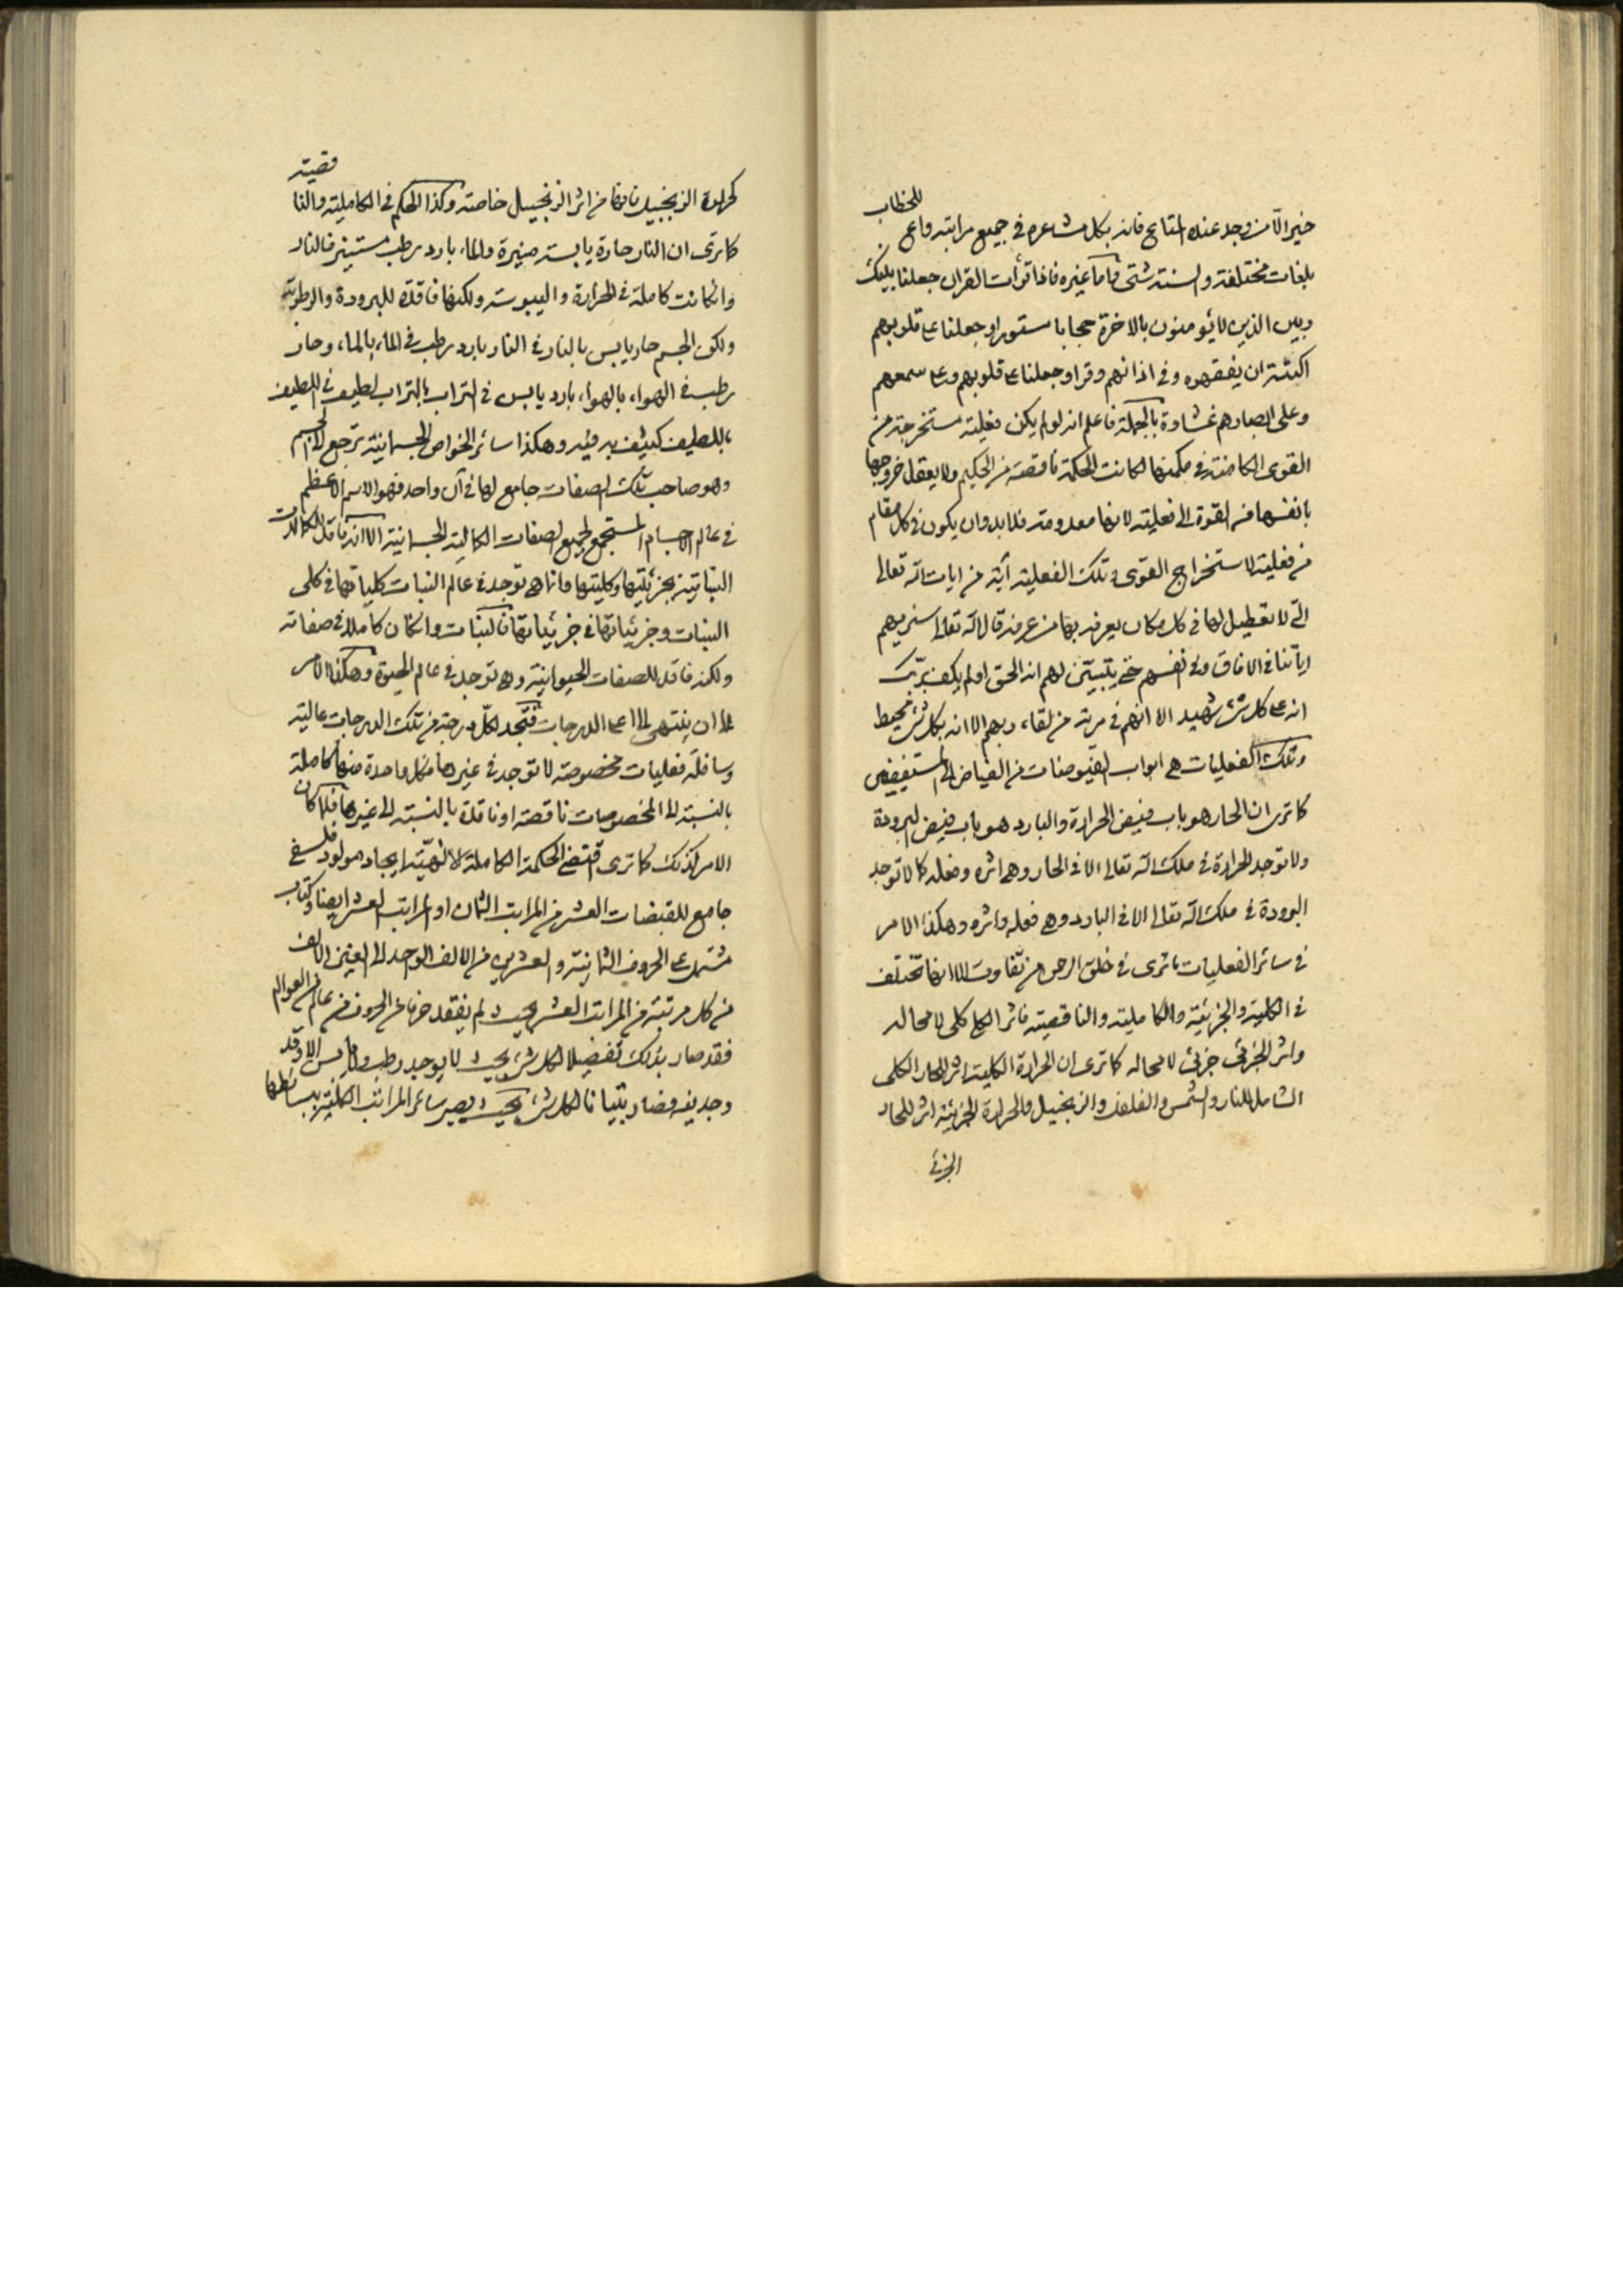 خير الا من وجد عنده المتابع فانه بكل مشاعره في جميع مراتبه واع للخطاب
بلغات مختلفة والسنة شتى واما غيره فاذا قرأت القران جعلنا بينك
وبين الذين لا يؤمنون بالاخرة حجابا مستورا وجعلنا على قلوبهم
اكنة ان يفقهوه وفي اذانهم وقرا وجعلنا على قلوبهم وعلى سمعهم
وعلى ابصارهم غشاوة بالجملة فاعلم انه لو لم يكن فعلية مستخرجة من
القوى الكامنة في مكمنها لكانت الحكمة ناقصة من الحكيم ولا يعقل خروجها
بانفسها من القوة الى فعلية لانها معدومة فلا بد وان يكون في كل مقام
من فعلية لاستخراج القوى وتلك الفعلية آية من ايات الله تعالى
التي لا تعطيل لها في كل مكان يعرفه بها من عرفه قال الله تعالى سنريهم
اياتنا في الافاق وفي انفسهم حتى يتبين لهم انه الحق اولم يكف بربك
انه على كل شئ شهيد الا انهم في مرية من لقاء ربهم الا انه بكل شئ محيط
وتلك الفعليات هي ابواب الفيوضات من الفياض الى المستفيضين
كما ترى ان الحار هو باب فيض الحرارة والبارد هو باب فيض البرودة
ولا توجد الحرارة في ملك الله تعالى الا في الحار وهي اثره وفعله كما لا توجد
البرودة في ملك الله تعالى الا في البارد وهي فعله واثره وهكذا الامر
في سائر الفعليات ما ترى في خلق الرحمن من تفاوت الا انها تختلف
في الكلية والجزئية والكاملية والناقصية فاثر الكلي كلي لا محالة
واثر الجزئي جزئي لا محالة كما ترى ان الحرارة الكلية اثر الحار الكلي
الشامل للنار والشمس والفلفل والزنجبيل والحرارة الجزئية اثر للحار
الجزئي
كحرارة الزنجبيل فانها من اثر الزنجبيل خاصة وكذا الحكم في الكاملية والناقصية
كما ترى ان النار حارة يابسة منيرة والماء بارد رطب مستنير فالنار
وان كانت كاملة في الحرارة واليبوسة ولكنها فاقدة للبرودة والرطوبة
ولكن الجسم حار يابس بالنار في النار بارد رطب في الماء بالماء وحار
رطب في الهواء بالهواء بارد يابس في التراب بالتراب لطيف في اللطيف
باللطيف كثيف به فيه وهكذا سائر الخواص الجسمانية ترجع الى الجسم
وهو صاحب تلك الصفات جامع لها في آن واحد فهو الاسم الاعظم
في عالم الاجسام المستجمع لجميع الصفات الكمالية الجسمانية الا انه فاقد للكمالات
النباتية بجزئيتها وكليتها وانما هي توجد في عالم النبات كلياتها في كلي
النبات وجزئياتها في جزئياتها فالنبات وان كان كاملا في صفاته
ولكنه فاقد للصفات الحيوانية وهي توجد في عالم الحيوة وهكذا الامر
الى ان ينتهي الى اعلى الدرجات فتجد لكل درجة من تلك الدرجات عالية
وسافلة فعليات مخصوصة لا توجد في غيرها فكل واحدة منها كاملة
بالنسبة الى المخصوصات ناقصة او فاقدة بالنسبة الى غيرها فلما كان
الامر كذلك كما ترى اقتضى الحكمة الكاملة الالهية ايجاد مولود فلسفي
جامع للقبضات العشر من المراتب الثمان او المراتب العشر ايضا وكتاب
مشتمل على الحروف الثمانية والعشرين من الالف الواحد الى الغين الالف
من كل مرتبة من المراتب العشر بحيث لم يفقد حرفا من الحروف من عالم من العوالم
فقد صار بذلك تفضيلا لكل شئ بحيث لا يوجد رطب ولا يابس الا وقد
وجد فيه فصار تبيانا لكل شئ بحيث يصير سائر المراتب الكلية ببسائطها